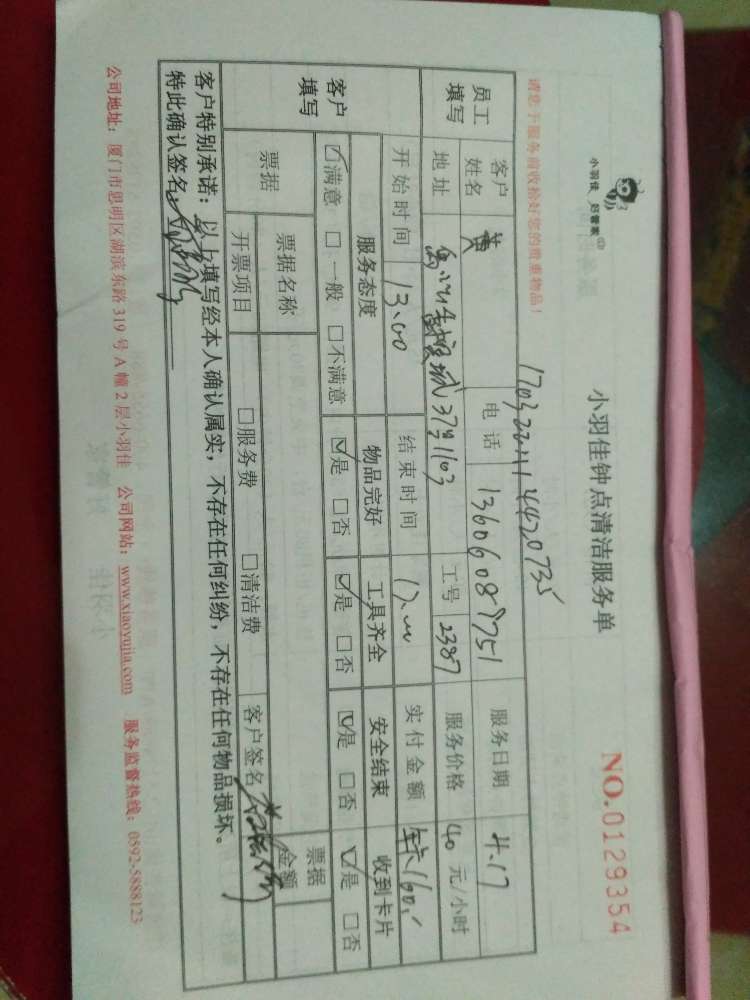 小羽佳 好管家
小羽佳钟点清洁服务单
NO.0129354
请您于服务前收拾好您的贵重物品！
员工填写
客户姓名 黄 电话 13606089751 服务日期 4.17
地址 37号1103 工号 2387 服务价格 40 元/小时
开始时间 13.00 结束时间 17.00 实付金额 160
客户填写
服务态度 物品完好 工具齐全 安全结束 收到卡片
☑满意 □一般 □不满意 ☑是 □否 ☑是 □否 ☑是 □否 ☑是 □否
票据 票据名称 票据金额
开票项目 □服务费 □清洁费 客户签名
客户特别承诺：以上填写经本人确认属实，不存在任何纠纷，不存在任何物品损坏。
特此确认签名
公司地址：厦门市思明区湖滨东路 319 号 A 幢 2 层小羽佳 公司网站：www.xiaoyujia.com 服务监督热线：0592-5888123